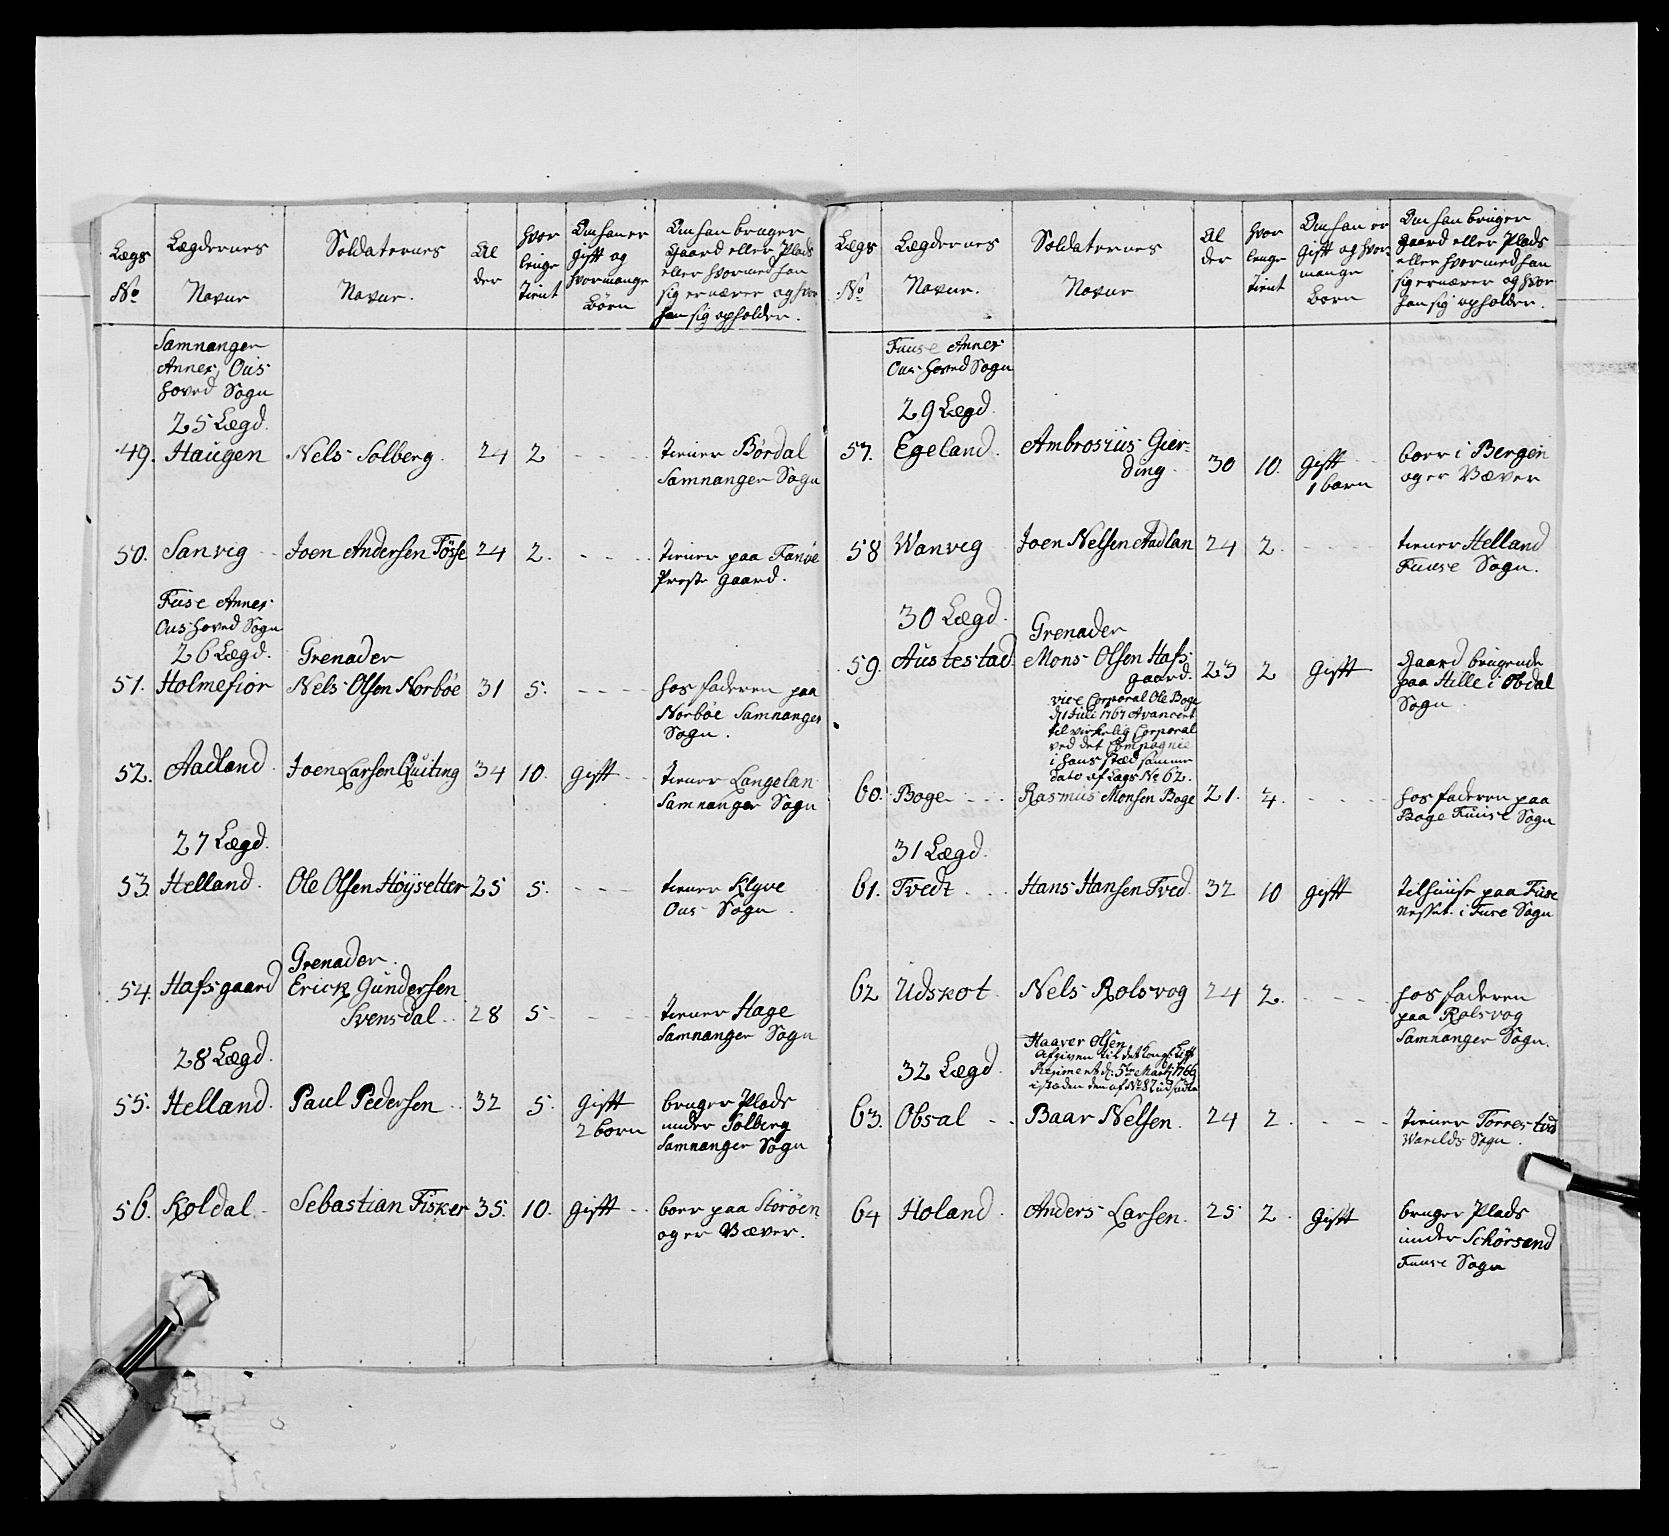 Lægs
No
Lægdernes
Navne
Soldaternes
Navne.
Al
der
hvor
lenge
tient
Om han er
gift og
hvormange
Børn
Om han bruger
Gaard eller Plads
eller hvormed han
sig ernærer og hvor
han sig opholder.
Samnanger
Annex, Ous
hoved Sogn
25 Lægd.
49. Haugen Nels Solberg. 24 2 - - - - tiener Børdal
Samnanger Sogn
50. Sanvig - - Joen Andersen Tösse 24 2. - - - - tiener paa Fanöe
Præste gaard.
Fuse Annex
Ous hoved Sogn
26 Lægd.
Grenader
51. Holmefior Nels Olsen Norbøe 31 5. - - - - hos faderen paa
Norbøe Samnanger
Sogn.
52. Aadland Joen Larsen Quiting 34 10. gift - - tiener Langelan
Samnanger Sogn
27 Lægd.
53. Helland. Ole Olsen Höysetter 25 5. - - - tiener Klyve
Ous Sogn.
Grenader.
54. Hafsgaard Erick Gundersen
Svensdal - - 28 5. - - - tiener Hage
Samnanger Sogn
28 Lægd.
55. Helland. Paul Pedersen - - 32 5. gift
2 børn
bruger Plads
under Solberg
Samnanger Sogn
56. Koldal - Sebastian Fisker 35. 10. gift - - boer paa Storöen
og er Væver.
Lægs
No
Lægdernes
Navne.
Soldaternes
Navne
Al
der
hvor
lenge
tient
Om han er
gift og hvor
mange
Born
Om han bruger
gaard eller Plads
eller hvormed han
sig ernærer og hvor
han sig opholder.
Fuuse Annex
Ous hoved Sogn
29 Lægd.
57. Egeland. Ambrosius Gier-
ding. 30 10. gift
1 barn
boer i Bergen
og er Væver
58 Wanvig Joen Nelsen Aadlan 24 2. - - - - tiener Helland
Fuuse Sogn.
30 Lægd.
Grenader
59. Austestad. Mons Olsen Hafs-
gaard. 23 2 Gift Gaard brugende
paa Hille i Obdal
Sogn.
vice Corporal Ole Boge
d 1 Juli 1767 Avancert
til virkelig Corporal
ved det Compagnie
i hans stæd samme
dato af Lægs No 62.
60. Boge - - - Rasmus Monsen Boge 21. 4. - - - - hos faderen paa
Boge Fuuse Sogn
31 Lægd.
61. Tvedt - - - Hans Hansen Tved. 32 10 gift tilhuuse paa Fuse
nesset i Fuse Sogn
62 Udskot. Nels Rolsvog 24 2. - - - hos faderen
paa Rolsvog
Samnanger Sogn.
32 Lægd.
Haaver Olsen
Afgiven til det
Regiment d: 5te 1766
istæden den af No 87
63. Obsal - - . Baar Nelsen. 24 2. - - - tiener Torres tvd
Warelds Sogn.
64 Holand. Anders Larsen. 25 2. Gift bruger Plads
under Schörsand
Fuuse Sogn